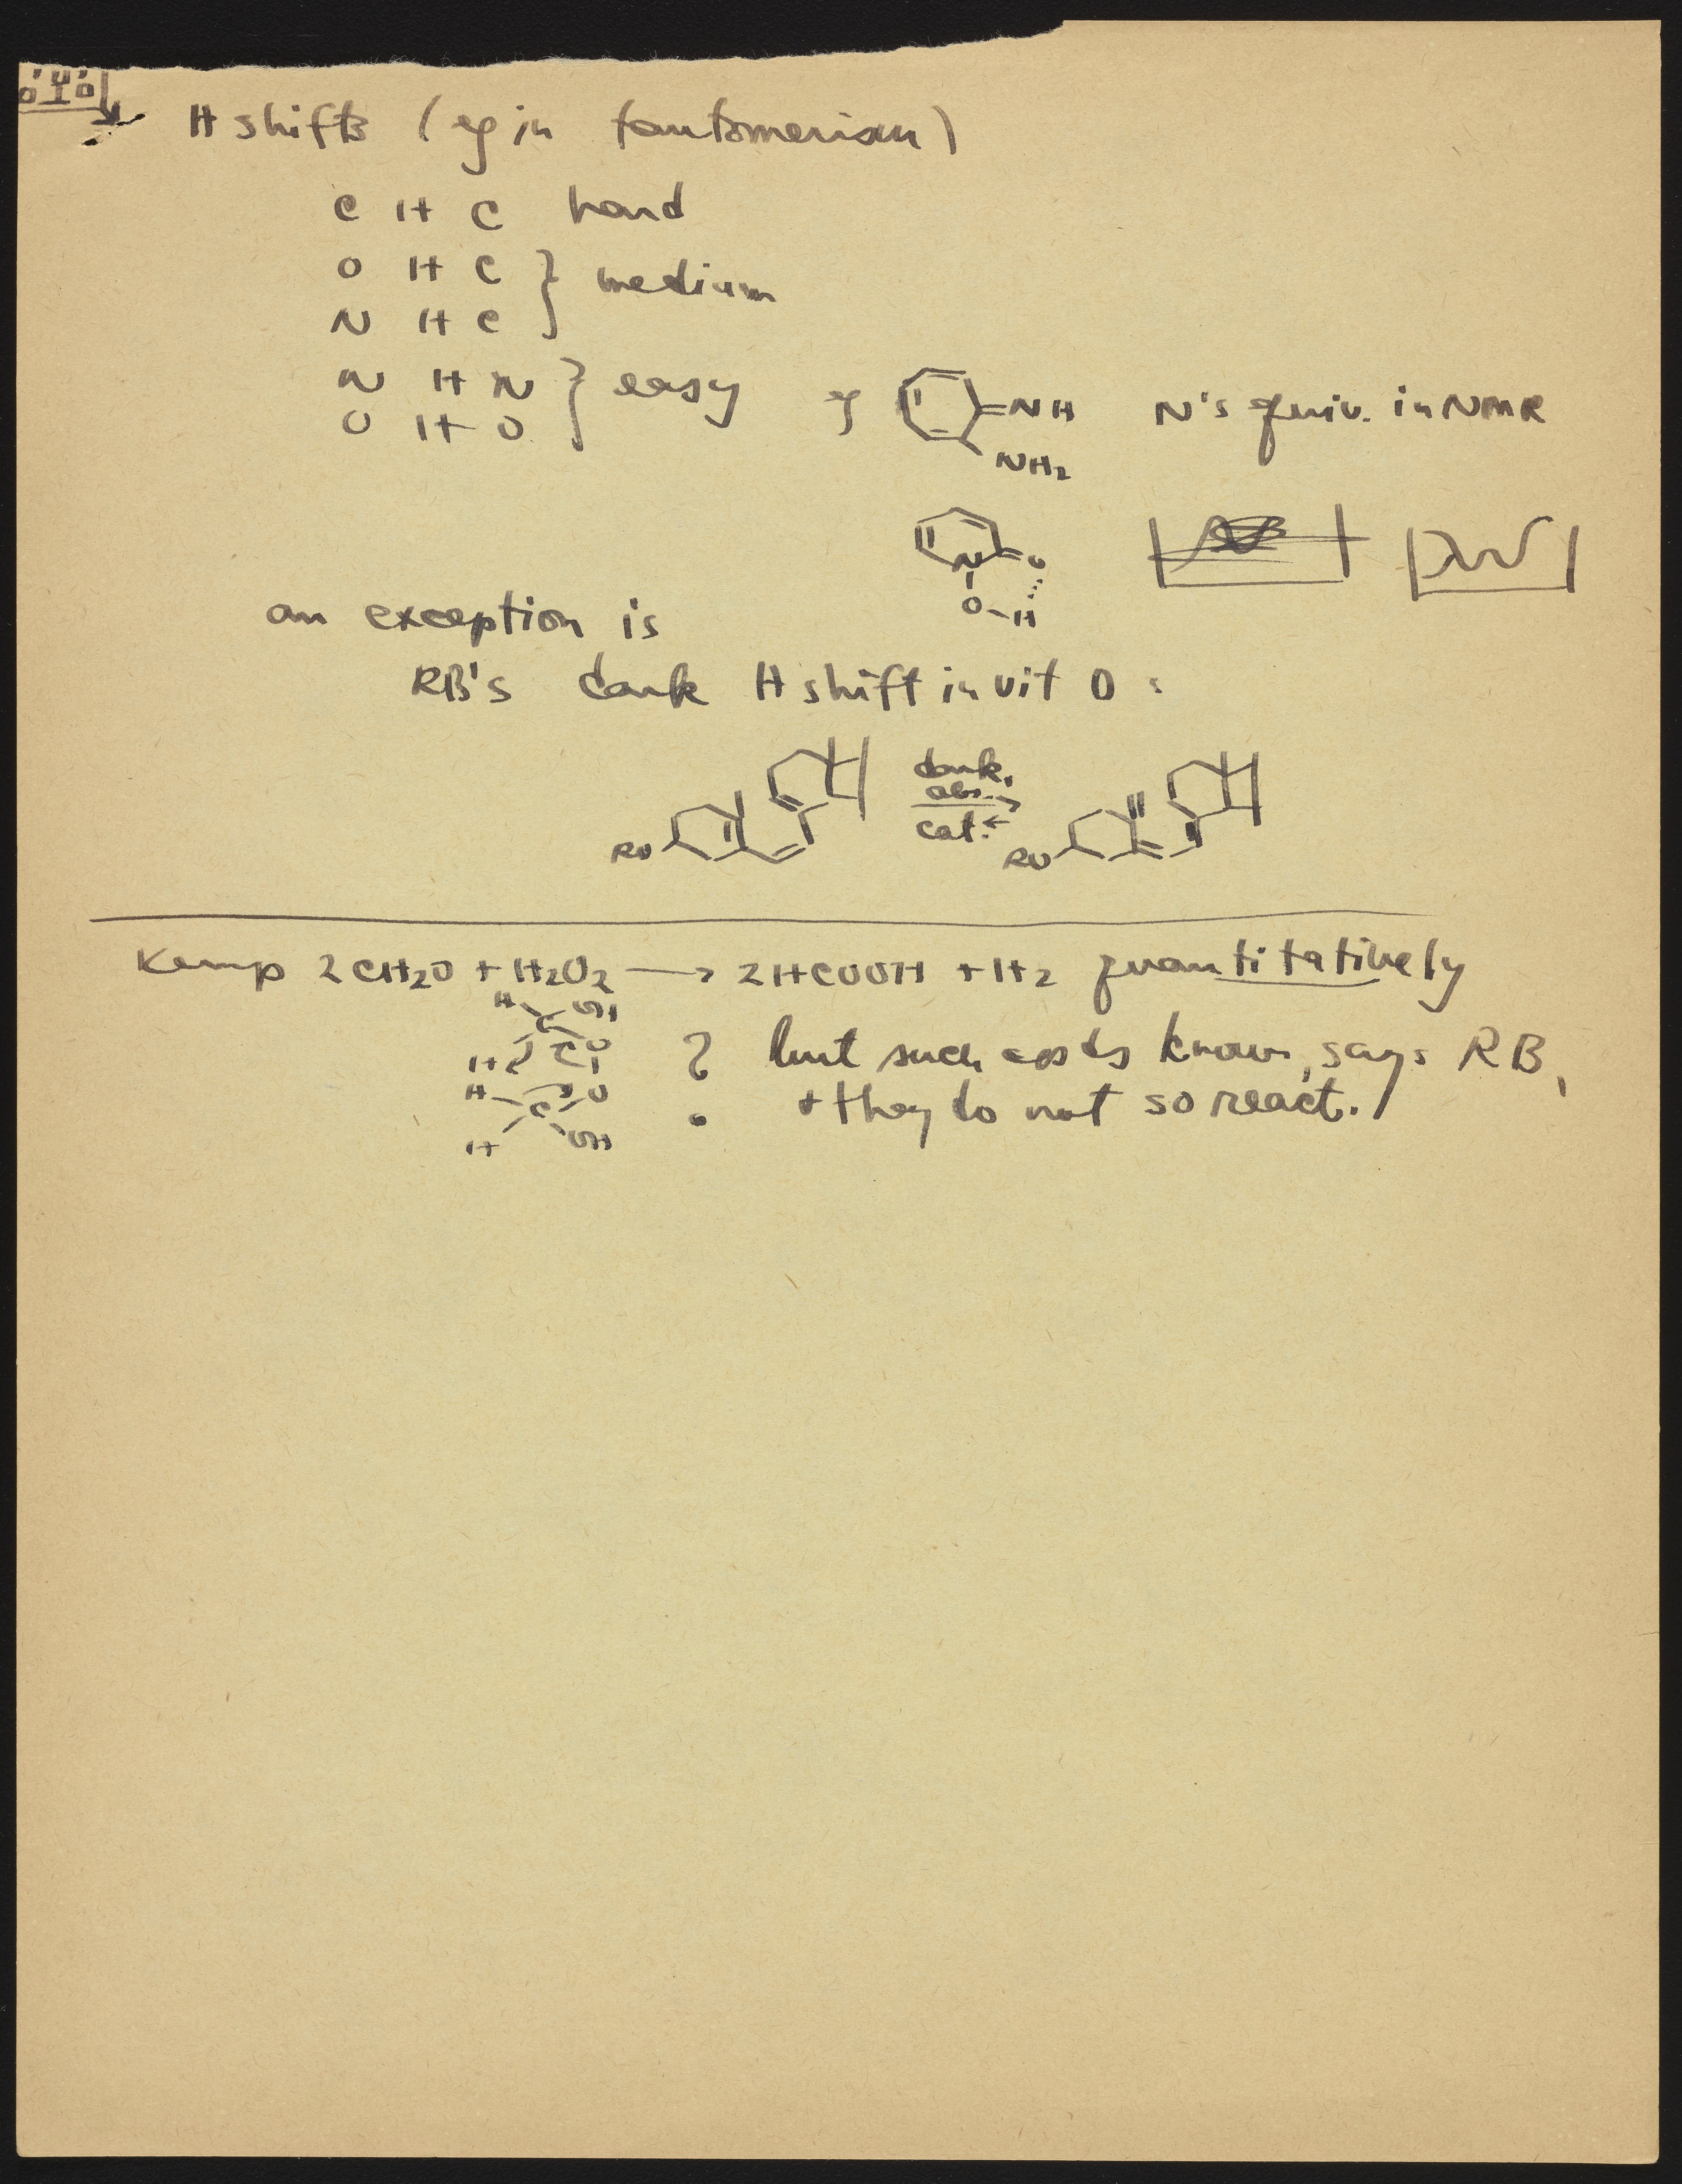 H shifts (eg in tautomerism)
C H C hard
O H C } medium
N H C
N H N } easy eg =NH N's equiv. in NMR
O H O
NH2
N O
O-H
an exception is
RB's dark H shift in vit D :
dark,
RO cat. RO
Kemp 2CH2O + H2O2 → 2HCOOH + H2 quantitatively
H OH
C
H O
? but such cpds known, says RB,
H O
C + they do not so react.
H OH